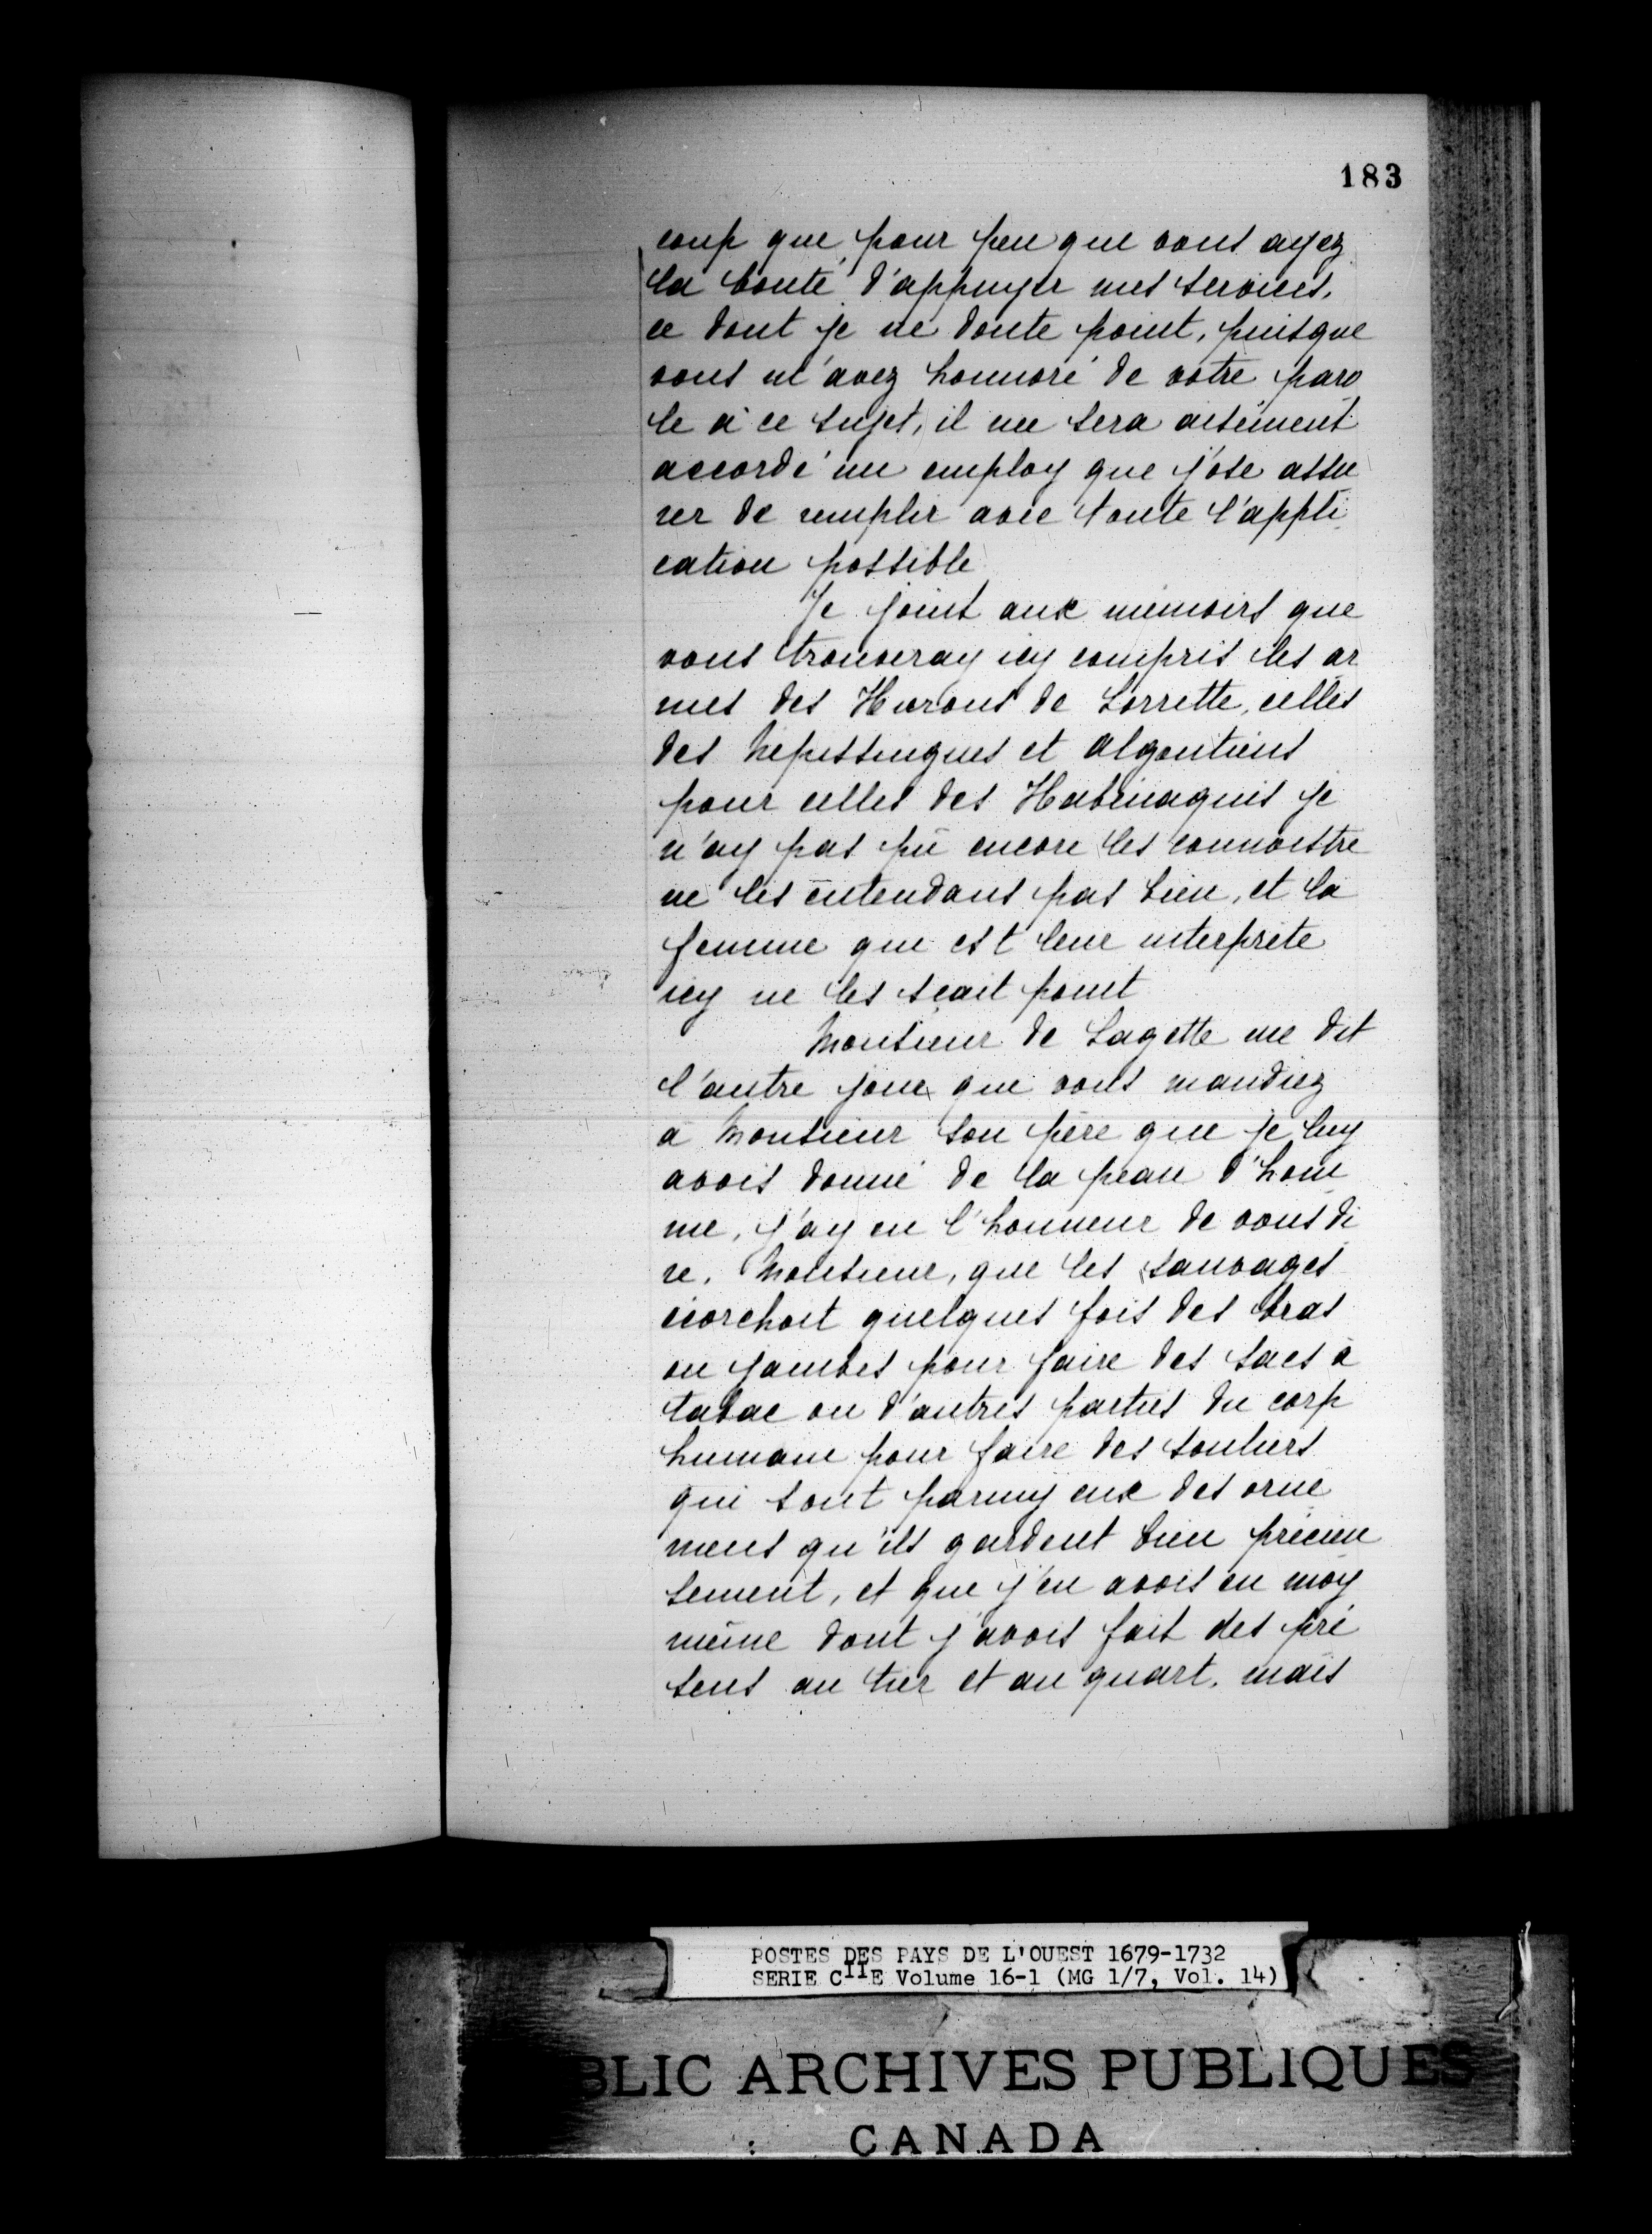 183
coup que, pour peu que vous ayez
la bonté d'appuyer mes services,
ce dont je ne doute point, puisque
vous m'avez honnoré de votre paro
le à ce sujet, il me sera aisément
accordé un employ que j'ose assu
rer de remplir avec toute l'appli
cation possible
Je joint aux mémoirs que
vous trouveray icy compris les ar
mes des Hurons de Lorrette, celles
des Nepissingues et Algontiens
pour celles des Habenaquis je
n'ay pas pû encore les connoistre
ne les entendans pas bien, et la
femme que est leur interprête
icy ne les scait point
Monsieur de Lagette me dit
l'autre jour que vous mandiez
à Monsieur son père que je luy
avois donné de la peau d'hom
me, j'ay eu l'honneur de vous di
re, Monsieur, que les sauvages
écorchoit quelques fois des bras
ou jambes pour faire des sacs à
tabac ou d'autres parties du corp
humain pour faire des souliers
qui sont parmy eux des orne
mens qu'ils gardent bien précieu
sement, et que j'en avois eu moy
même dont j'avois fait des pré
sens au tier et au quart, mais
POSTES DES PAYS DE L'OUEST 1679-1732
SERIE CIIE Volume 16-1 (MG 1/7, Vol. 14)
BLIC ARCHIVES PUBLIQUES
CANADA